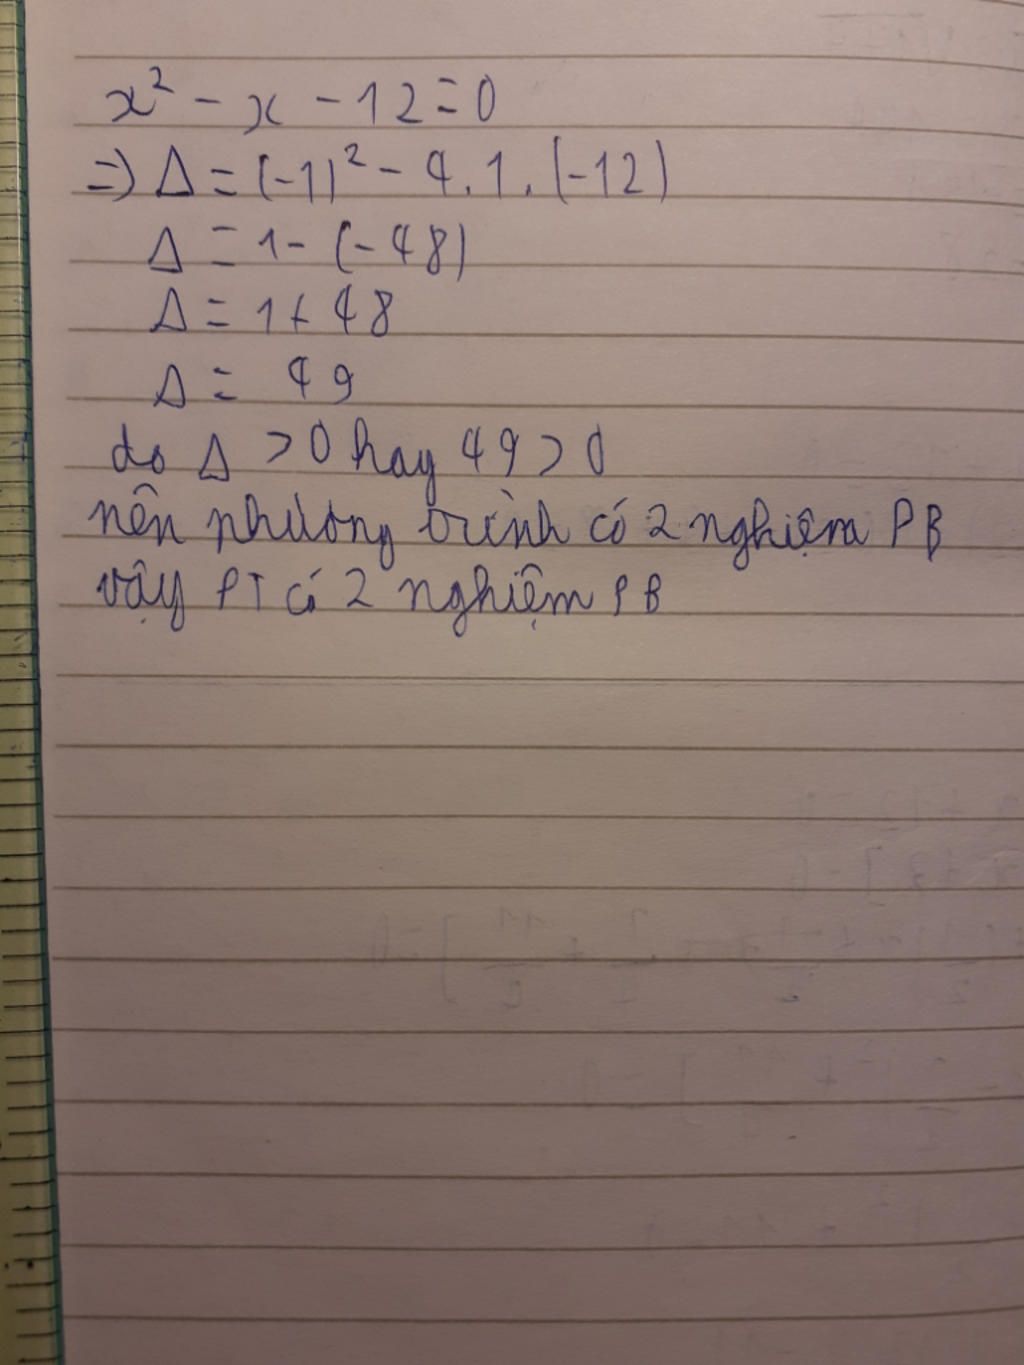 x² - x - 12 = 0
=) Δ = (-1)² - 4.1.(-12)
Δ = 1 - (-48)
Δ = 1 + 48
Δ = 49
do Δ > 0 hay 49 > 0
nên phương trình có 2 nghiệm PB
vậy PT có 2 nghiệm PB